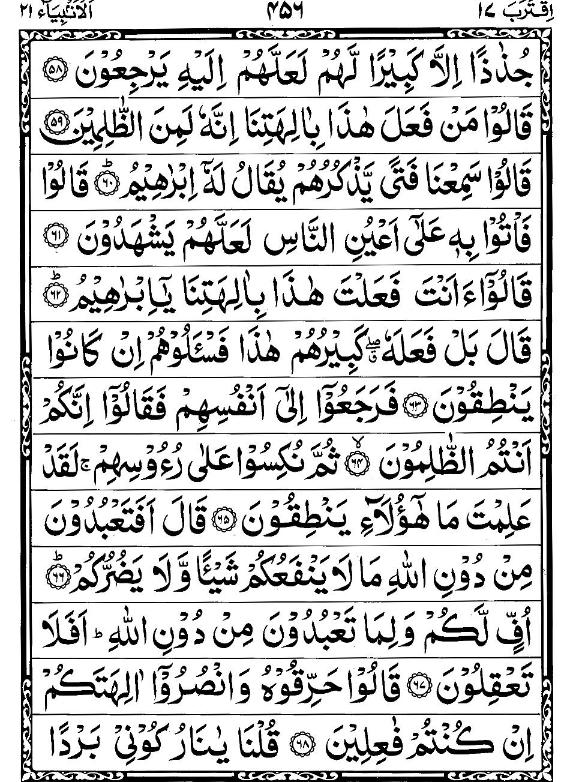 اِقْتَرَبَ ١٧ ۴۵۶ اَلْاَنْبِيَآء ٢١
جُذٰذًا اِلَّا كَبِيْرًا لَّهُمْ لَعَلَّهُمْ اِلَيْهِ يَرْجِعُوْنَ ۝٥٨
قَالُوْا مَنْ فَعَلَ هٰذَا بِاٰلِهَتِنَاۤ اِنَّهٗ لَمِنَ الظّٰلِمِيْنَ ۝٥٩
قَالُوْا سَمِعْنَا فَتًى يَّذْكُرُهُمْ يُقَالُ لَهٗۤ اِبْرٰهِيْمُ ؕ۝٦٠ قَالُوْا
فَاْتُوْا بِهٖ عَلٰۤى اَعْيُنِ النَّاسِ لَعَلَّهُمْ يَشْهَدُوْنَ ۝٦١
قَالُوْۤا ءَاَنْتَ فَعَلْتَ هٰذَا بِاٰلِهَتِنَا يٰۤاِبْرٰهِيْمُ ؕ۝٦٢
قَالَ بَلْ فَعَلَهٗ ۖۗ كَبِيْرُهُمْ هٰذَا فَسْـَٔلُوْهُمْ اِنْ كَانُوْا
يَنْطِقُوْنَ ۝٦٣ فَرَجَعُوْۤا اِلٰۤى اَنْفُسِهِمْ فَقَالُوْۤا اِنَّكُمْ
اَنْتُمُ الظّٰلِمُوْنَ ۙ۝٦٤ ثُمَّ نُكِسُوْا عَلٰى رُءُوْسِهِمْ ۚ لَقَدْ
عَلِمْتَ مَا هٰۤؤُلَآءِ يَنْطِقُوْنَ ۝٦٥ قَالَ اَفَتَعْبُدُوْنَ
مِنْ دُوْنِ اللّٰهِ مَا لَا يَنْفَعُكُمْ شَيْـًٔا وَّ لَا يَضُرُّكُمْ ؕ۝٦٦
اُفٍّ لَّكُمْ وَ لِمَا تَعْبُدُوْنَ مِنْ دُوْنِ اللّٰهِ ؕ اَفَلَا
تَعْقِلُوْنَ ۝٦٧ قَالُوْا حَرِّقُوْهُ وَ انْصُرُوْۤا اٰلِهَتَكُمْ
اِنْ كُنْتُمْ فٰعِلِيْنَ ۝٦٨ قُلْنَا يٰنَارُ كُوْنِيْ بَرْدًا